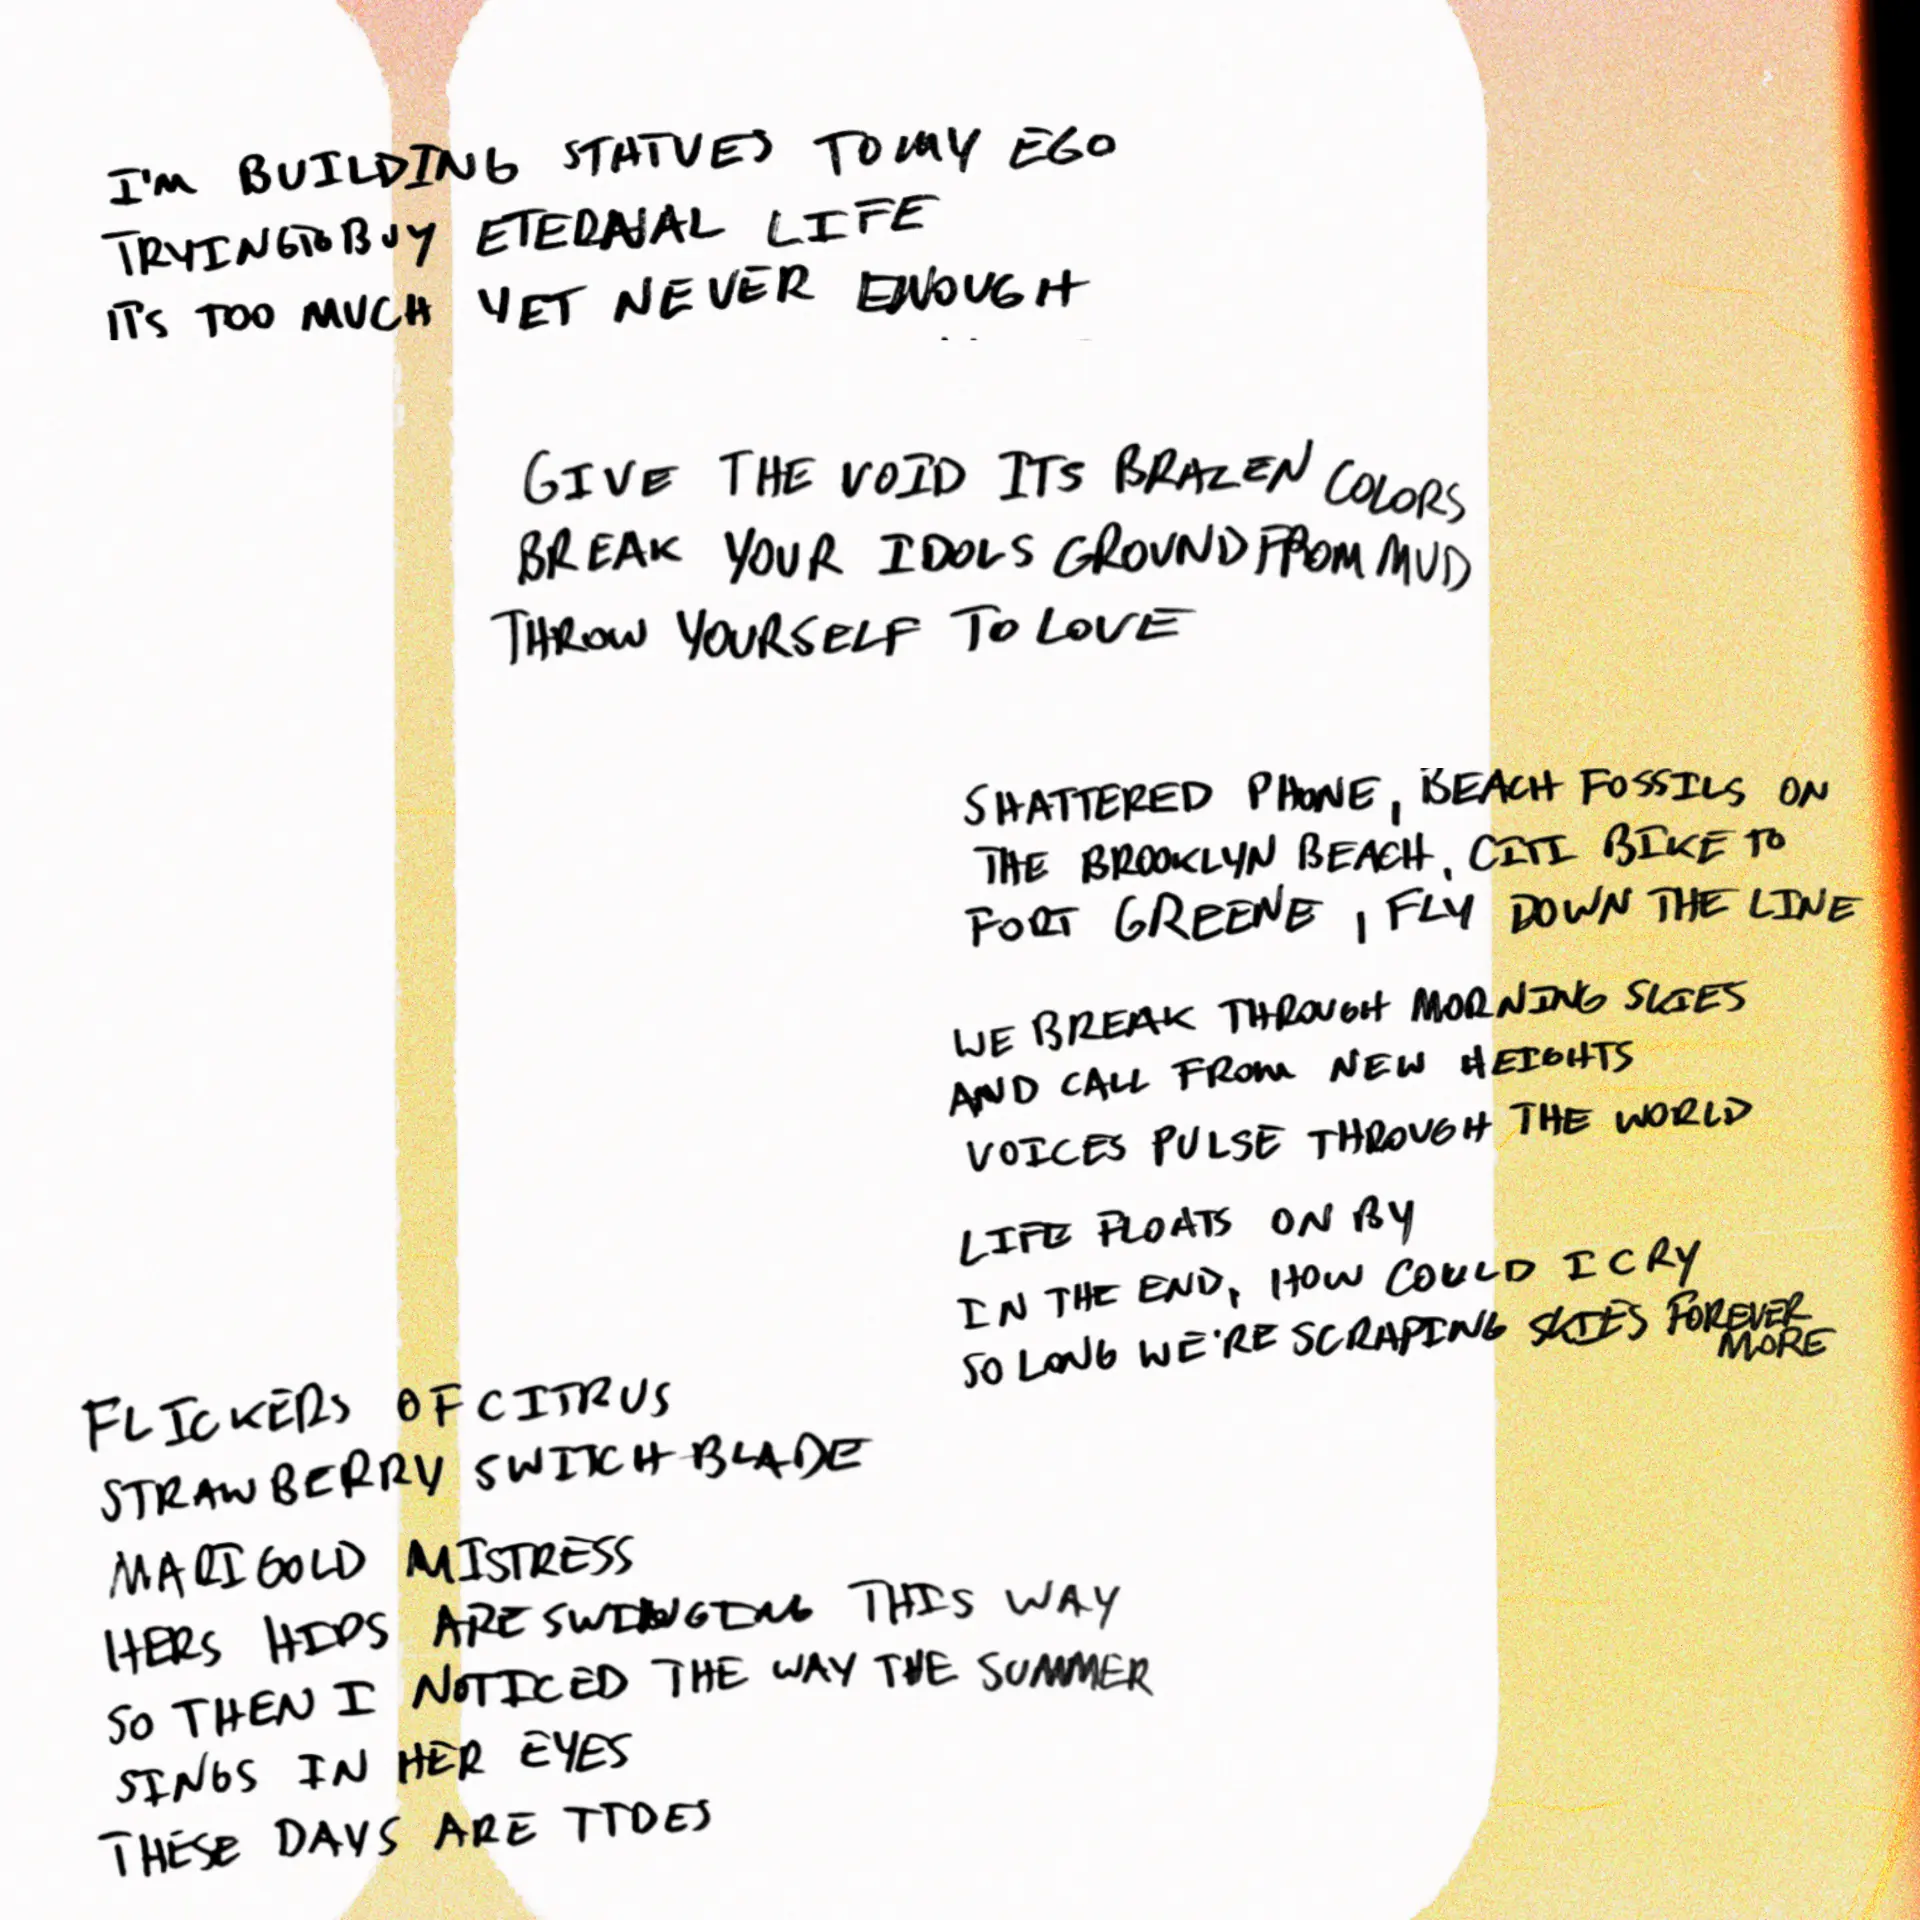 I'M BUILDING STATUES TO MY EGO
TRYING TO BUY ETERNAL LIFE
IT'S TOO MUCH YET NEVER ENOUGH
GIVE THE VOID ITS BRAZEN COLORS
BREAK YOUR IDOLS GROUND FROM MUD
THROW YOURSELF TO LOVE
SHATTERED PHONE, BEACH FOSSILS ON
THE BROOKLYN BEACH, CITI BIKE TO
FORT GREENE, FLY DOWN THE LINE
WE BREAK THROUGH MORNING SKIES
AND CALL FROM NEW HEIGHTS
VOICES PULSE THROUGH THE WORLD
LIFE FLOATS ON BY
IN THE END, HOW COULD I CRY
SO LONG WE'RE SCRAPING SKIES FOREVER
MORE
FLICKERS OF CITRUS
STRAWBERRY SWITCHBLADE
MARIGOLD MISTRESS
HERS HIPS ARE SWINGING THIS WAY
SO THEN I NOTICED THE WAY THE SUMMER
SINGS IN HER EYES
THESE DAYS ARE TIDES